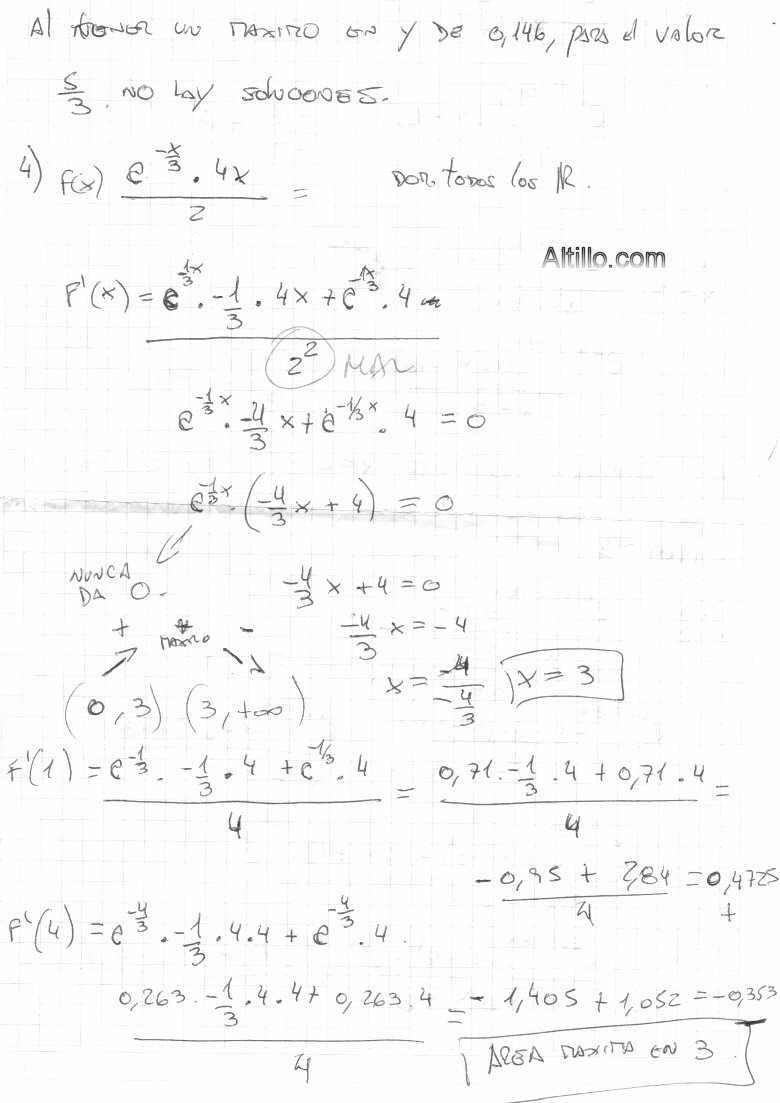 Al tener un maximo en y de 0,146, para el valor
5/3 . no hay soluciones.
4) f(x) e^(-x/3) . 4x / 2 = Dom. todos los R.
Altillo.com
F'(x) = e^(-1/3 x) . -1/3 . 4x + e^(-1x/3) . 4 / 2² MAL
e^(-1/3 x) . -4/3 x + e^(-1/3 x) . 4 = 0
e^(-1/3 x) . (-4/3 x + 4) = 0
NUNCA DA 0.
-4/3 x + 4 = 0
-4/3 x = -4
x = -4 / -4/3 x = 3
+ maximo -
(0, 3) (3, +∞)
F'(1) = e^(-1/3) . -1/3 . 4 + e^(-1/3) . 4 / 4 = 0,71 . -1/3 . 4 + 0,71 . 4 / 4 =
-0,95 + 2,84 / 4 = 0,4725 +
F'(4) = e^(-4/3) . -1/3 . 4 . 4 + e^(-4/3) . 4 .
0,263 . -1/3 . 4 . 4 + 0,263 . 4 / 4 = -1,405 + 1,052 = -0,353 -
AREA MAXIMA EN 3.